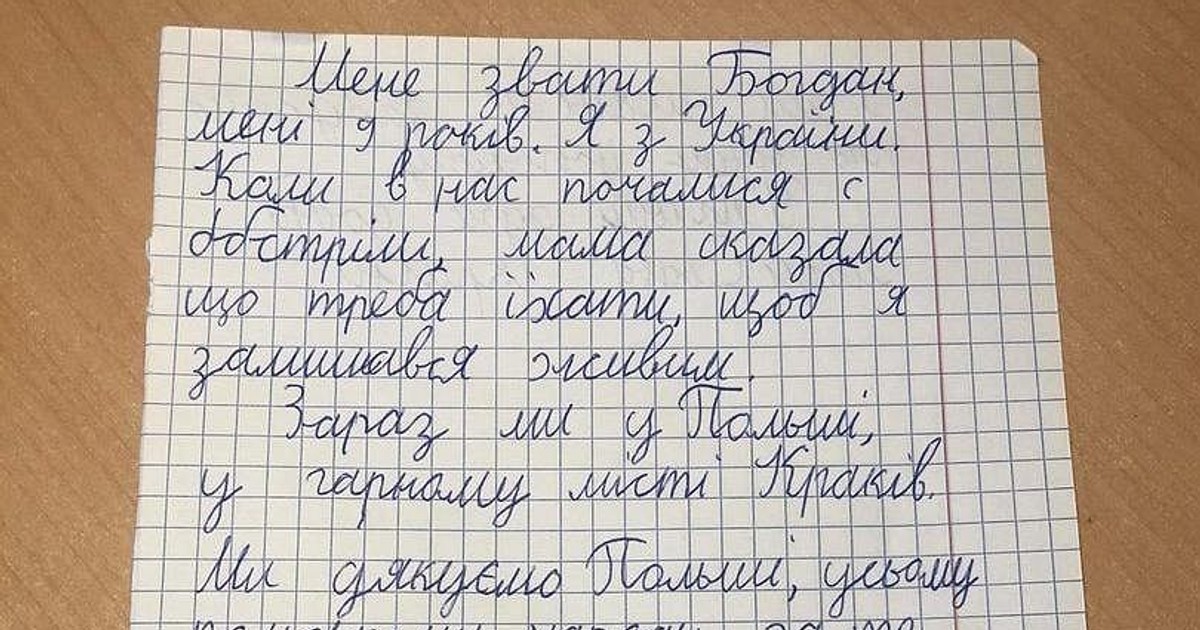 Мене звати Богдан,
мені 9 років. Я з України.
Коли в нас почалися с
обстріли, мама сказала
що треба їхати, щоб я
залишався живим.
Зараз ми у Польші,
у гарному місті Краків.
Ми дякуємо Польші, усьому